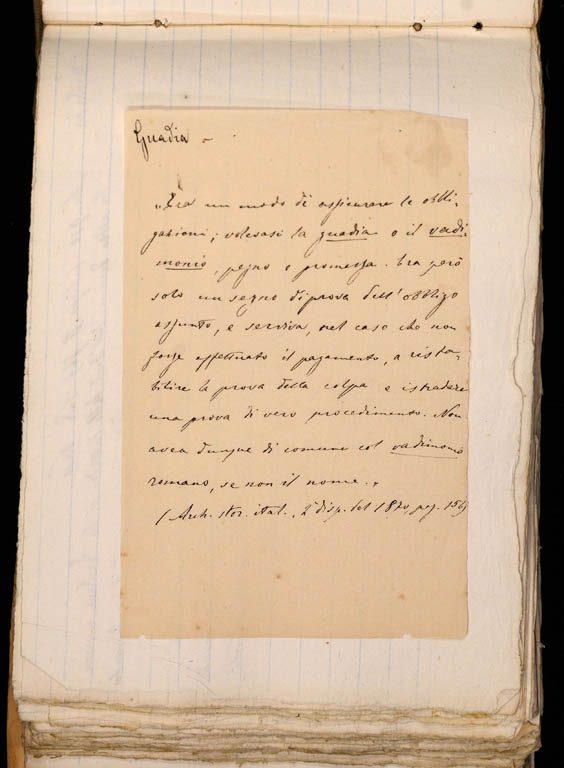 Guadia -
"Era un modo di assicurare le obbli-
gazioni; volevasi la guadia o il vadi-
monio, pegno o promessa. Era però
solo un segno di prova dell'obbligo
assunto, e serviva, nel caso che non
fosse effettuato il pagamento, a rista-
bilire la prova della colpa e istradare
una prova di vero procedimento. Non
avea dunque di comune col vadimonio
romano, se non il nome."
(Arch. stor. ital., 2ª disp. del 1870, pag. 156)